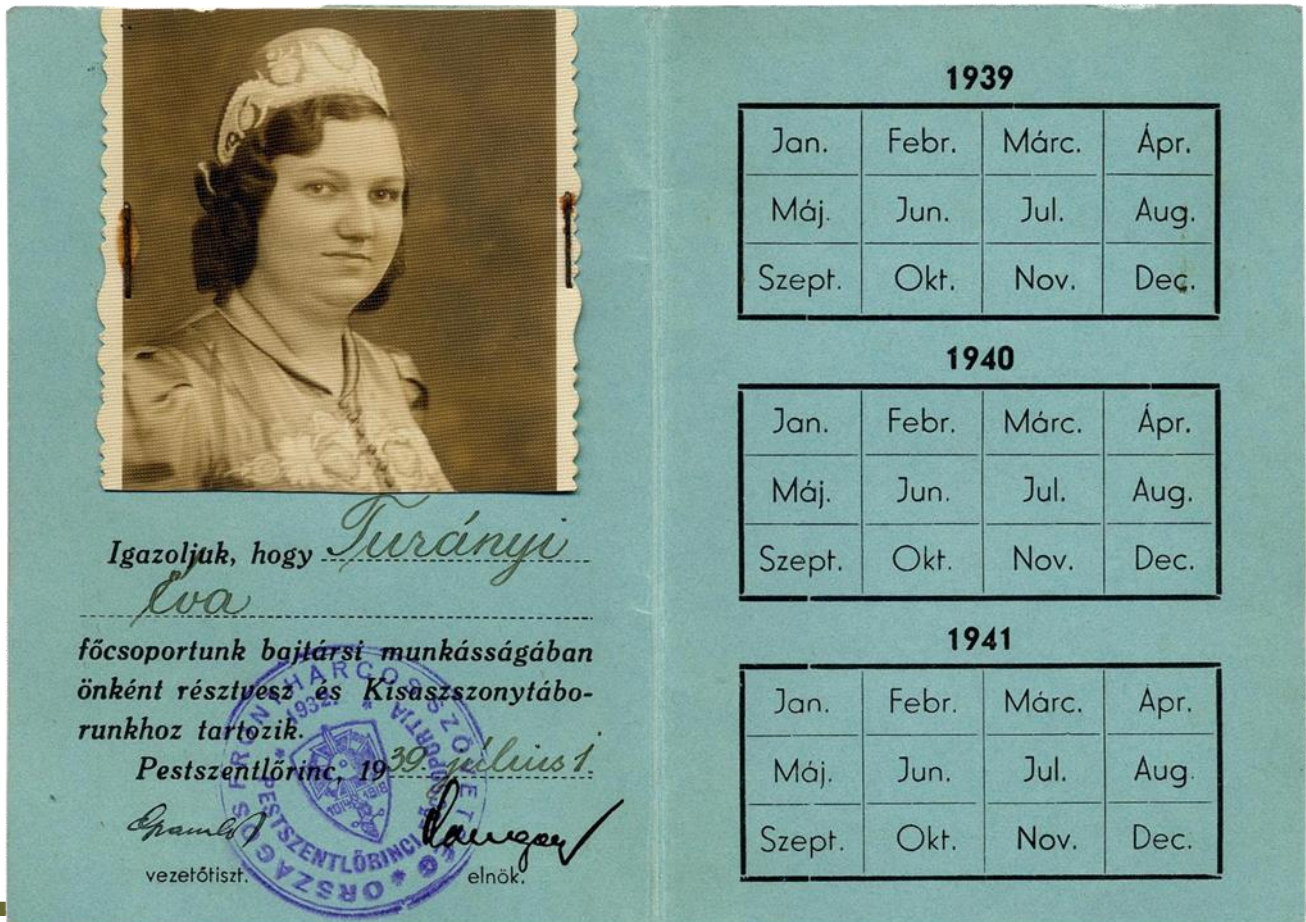 Igazoljuk, hogy Turányi
Éva
főcsoportunk bajtársi munkásságában
önként résztvesz és Kisaszszonytábo-
runkhoz tartozik.
Pestszentlőrinc, 1939 július 1.
vezetőtiszt. elnök.
ORSZÁGOS FRONTHARCOS SZÖVETSÉG
PESTSZENTLŐRINCI FŐCSOPORTJA
1932.
1914 1918
1939
Jan. Febr. Márc. Ápr.
Máj. Jun. Jul. Aug.
Szept. Okt. Nov. Dec.
1940
Jan. Febr. Márc. Ápr.
Máj. Jun. Jul. Aug.
Szept. Okt. Nov. Dec.
1941
Jan. Febr. Márc. Ápr.
Máj. Jun. Jul. Aug.
Szept. Okt. Nov. Dec.